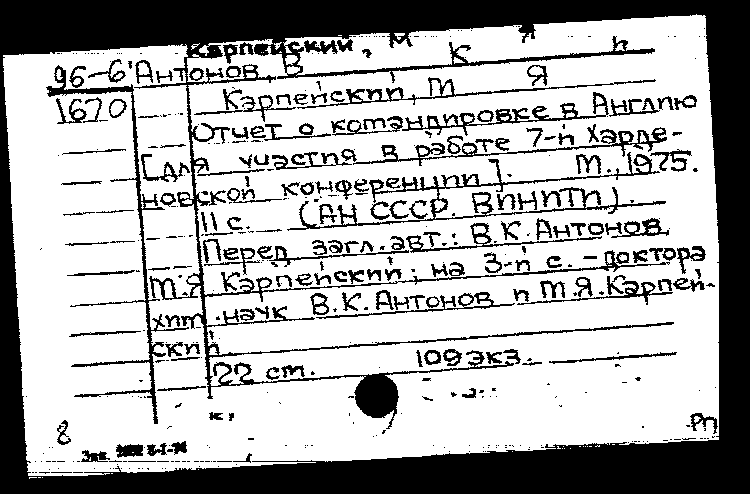 Карпейский, М Я п
96-6 Антонов, В К
1670 Карпейский, М Я
Отчет о командировке в Англию
[для участия в работе 7-й Харде-
новской конференции]. М., 1975.
11 с. (АН СССР. ВИНИТИ).
Перед загл. авт.: В.К. Антонов,
М.Я Карпейский; на 3-й с. - доктора
хим. наук В.К. Антонов и М.Я. Карпей-
ский.
22 см. 109 экз.
8
Рп